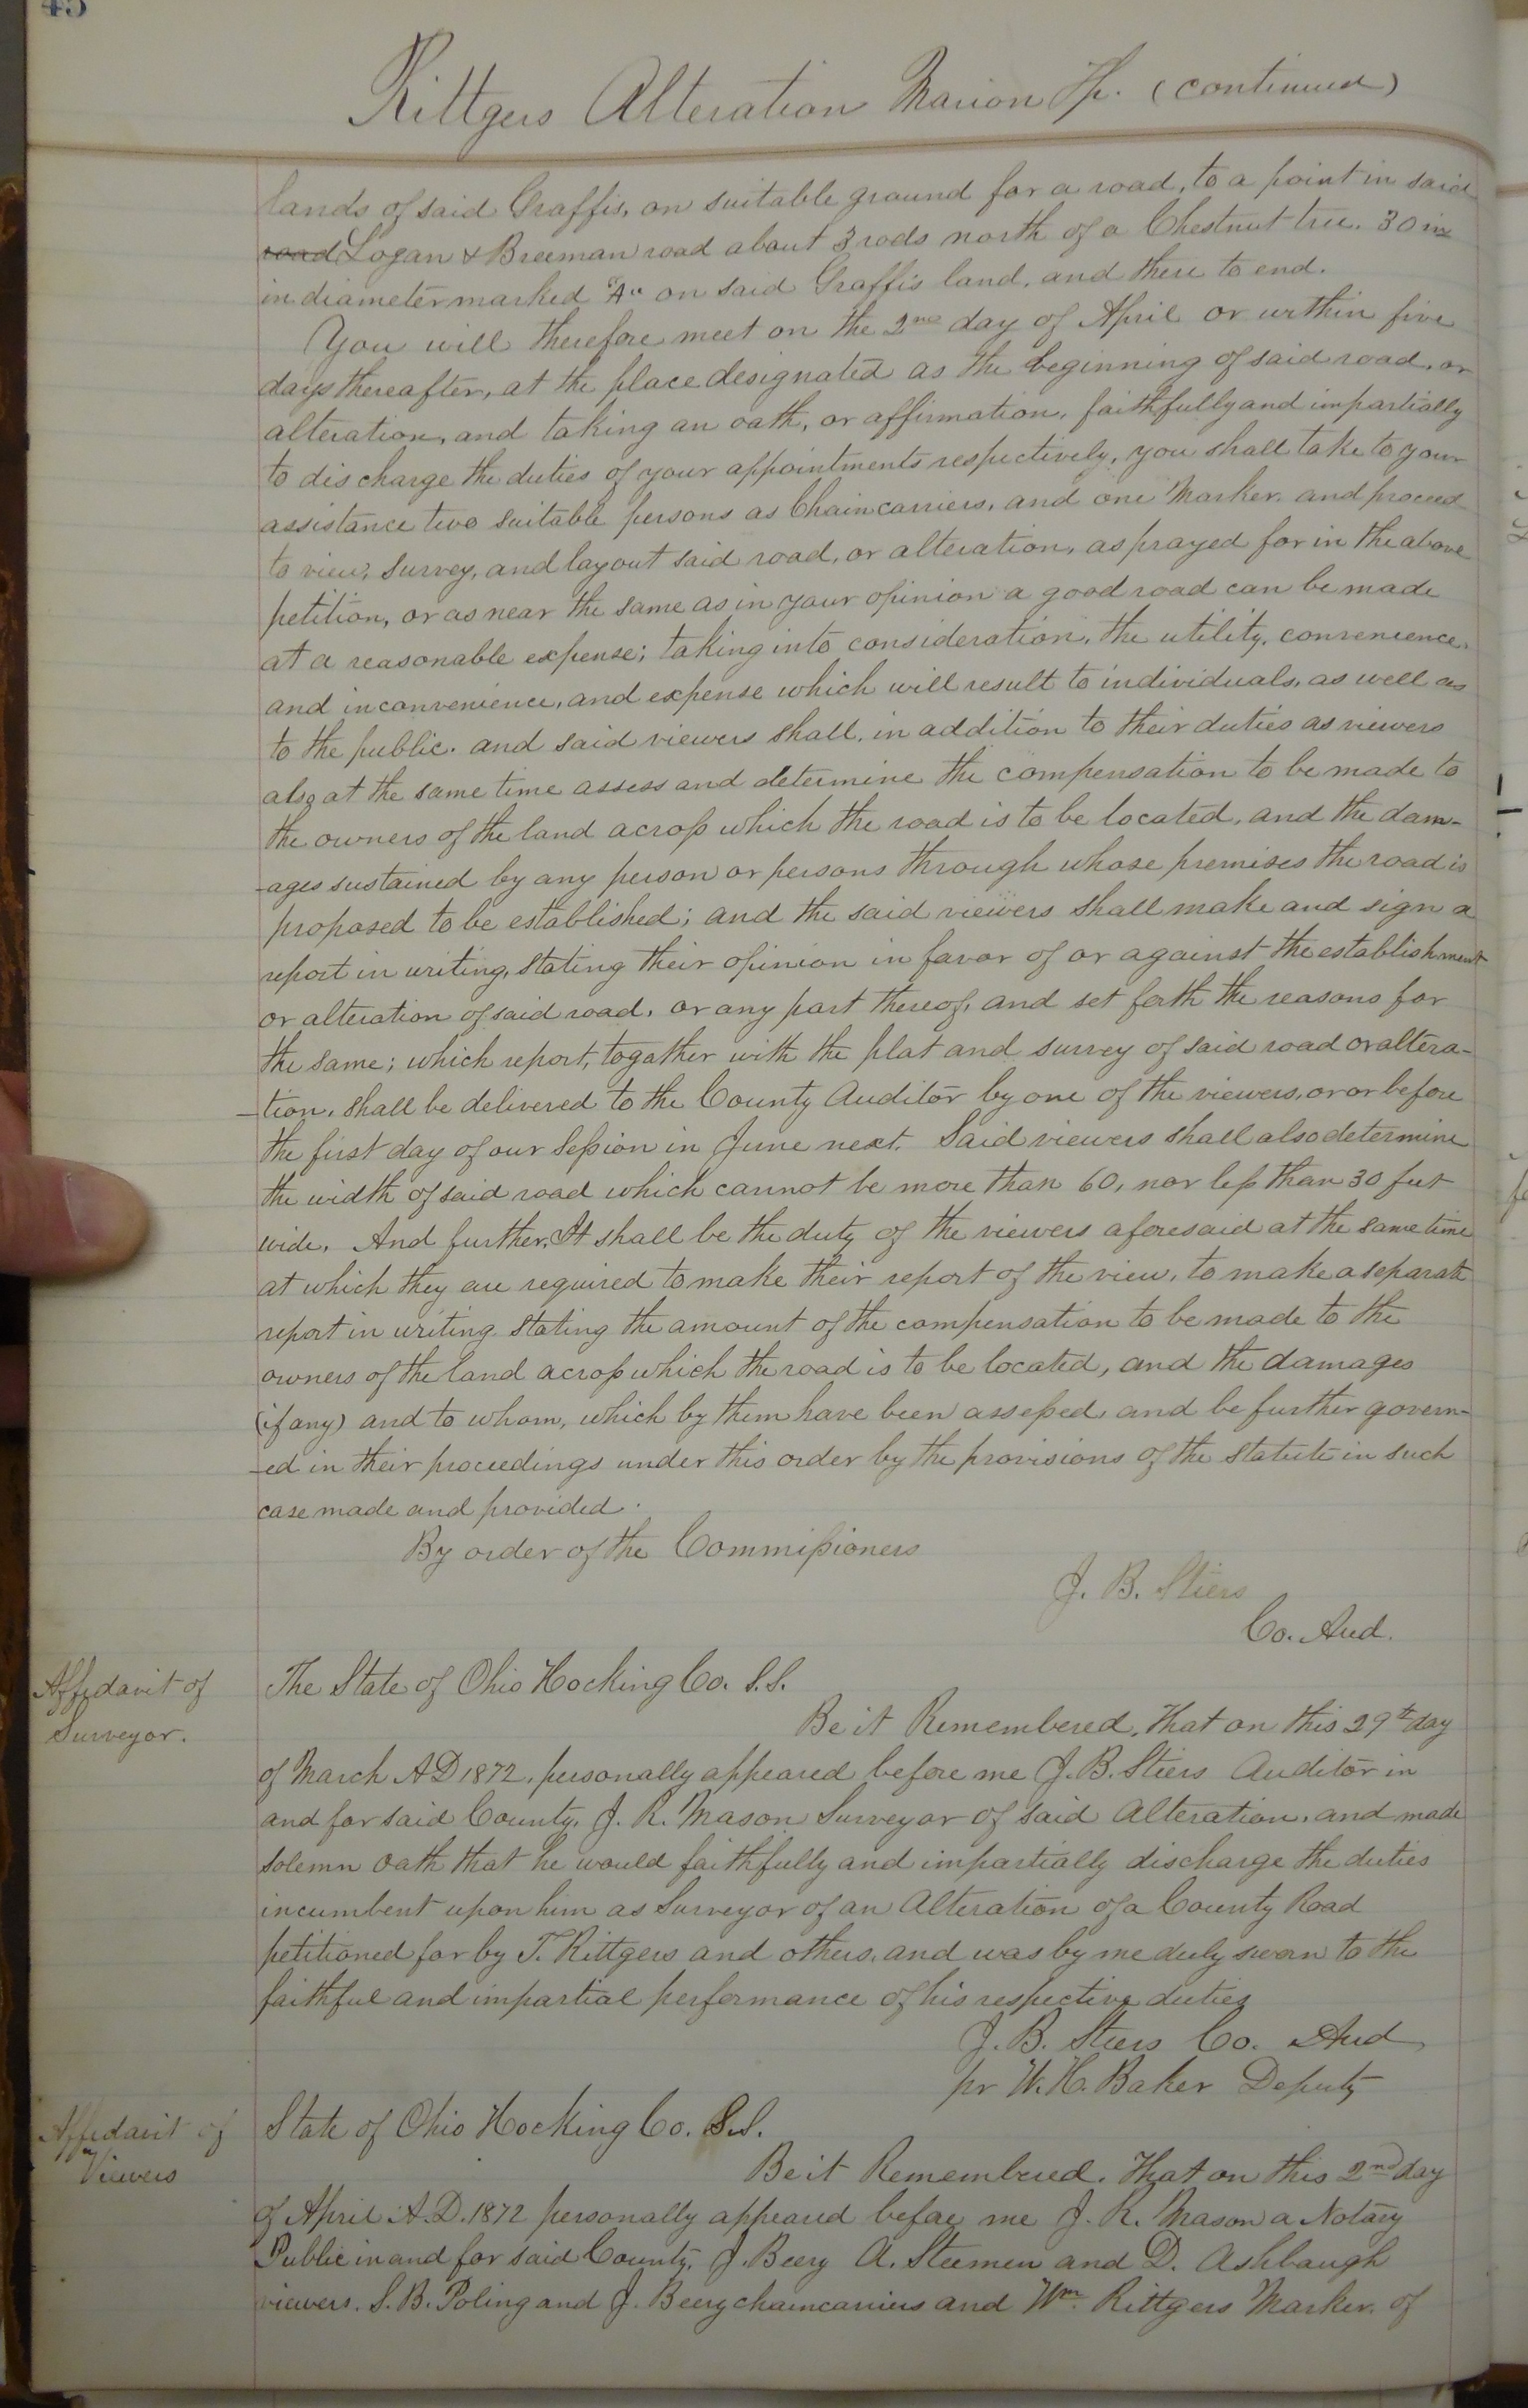 45
Rittgers Alteration Marion Tp. (continued)
lands of said Graffis, on suitable ground for a road, to a point in said
road Logan & Breeman road about 3 rods north of a Chestnut tree. 30 in
in diameter marked "A" on said Graffis land, and there to end.
You will therefore meet on the 2nd day of April or within five
days thereafter, at the place designated as the beginning of said road, or
alteration, and taking an oath, or affirmation, faithfully and impartially
to discharge the duties of your appointments respectively, you shall take to your
assistance two suitable persons as Chaincarriers, and one Marker. and proceed
to view, survey, and layout said road, or alteration, as prayed for in the above
petition, or as near the same as in your opinion a good road can be made
at a reasonable expense; taking into consideration, the utility, convenience,
and inconvenience, and expense which will result to individuals, as well as
to the public. and said viewers shall, in addition to their duties as viewers
also at the same time assess and determine the compensation to be made to
the owners of the land across which the road is to be located, and the dam-
-ages sustained by any person or persons through whose premises the road is
proposed to be established; and the said viewers shall make and sign a
report in writing, stating their opinion in favor of or against the establishment
or alteration of said road, or any part thereof, and set forth the reasons for
the same; which report, togather with the plat and survey of said road or altera-
-tion, shall be delivered to the County Auditor by one of the viewers, or or before
the first day of our Session in June next. Said viewers shall also determine
the width of said road which cannot be more than 60, nor less than 30 feet
wide. And further, It shall be the duty of the viewers aforesaid at the same time
at which they are required to make their report of the view, to make a separate
report in writing stating the amount of the compensation to be made to the
owners of the land across which the road is to be located, and the damages
(if any) and to whom, which by them have been assessed, and be further govern-
-ed in their proceedings under this order by the provisions of the statute in such
case made and provided.
By order of the Commissioners
J. B. Stiers
Co. Aud.
Affidavit of
Surveyor.
The State of Ohio Hocking Co. S.S.
Be it Remembered, That on this 29th day
of March A D 1872, personally appeared before me J. B. Stiers Auditor in
and for said County, J. R. Mason Surveyor of said Alteration, and made
solemn oath that he would faithfully and impartially discharge the duties
incumbent upon him as Surveyor of an Alteration of a County Road
petitioned for by T. Rittgers and others, and was by me duly sworn to the
faithful and impartial performance of his respective duties
J. B. Stiers Co. Aud
pr W. H. Baker Deputy
Affidavit of
Viewers
State of Ohio Hocking Co. S.S.
Be it Remembered. That on this 2nd day
of April A.D. 1872 personally appeared before me J. R. Mason a Notary
Public in and for said County, J. Beery A. Steemen and D. Ashbaugh
viewers. S. B. Poling and J. Beery chaincarriers and Wm. Rittgers Marker. of